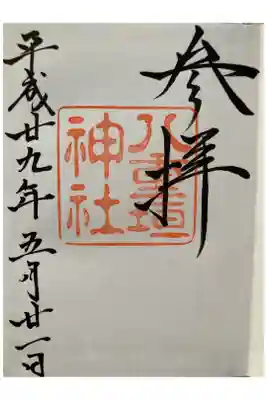 参拝
八重垣
神社
平成廿九年五月廿一日